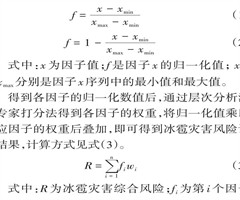 f = (x − x_min) / (x_max − x_min) (
f = 1 − (x − x_min) / (x_max − x_min) (
式中：x 为因子值；f 是因子 x 的归一化值；x
x_max 分别是因子 x 序列中的最小值和最大值。
得到各因子的归一化数值后，通过层次分析法
专家打分法得到各因子的权重，将归一化值乘
应因子的权重后叠加，即可得到冰雹灾害风险
结果，计算方式见式(3)。
R = ∑_{i=1}^{n} f_i w_i (3
式中：R 为冰雹灾害综合风险；f_i 为第 i 个因